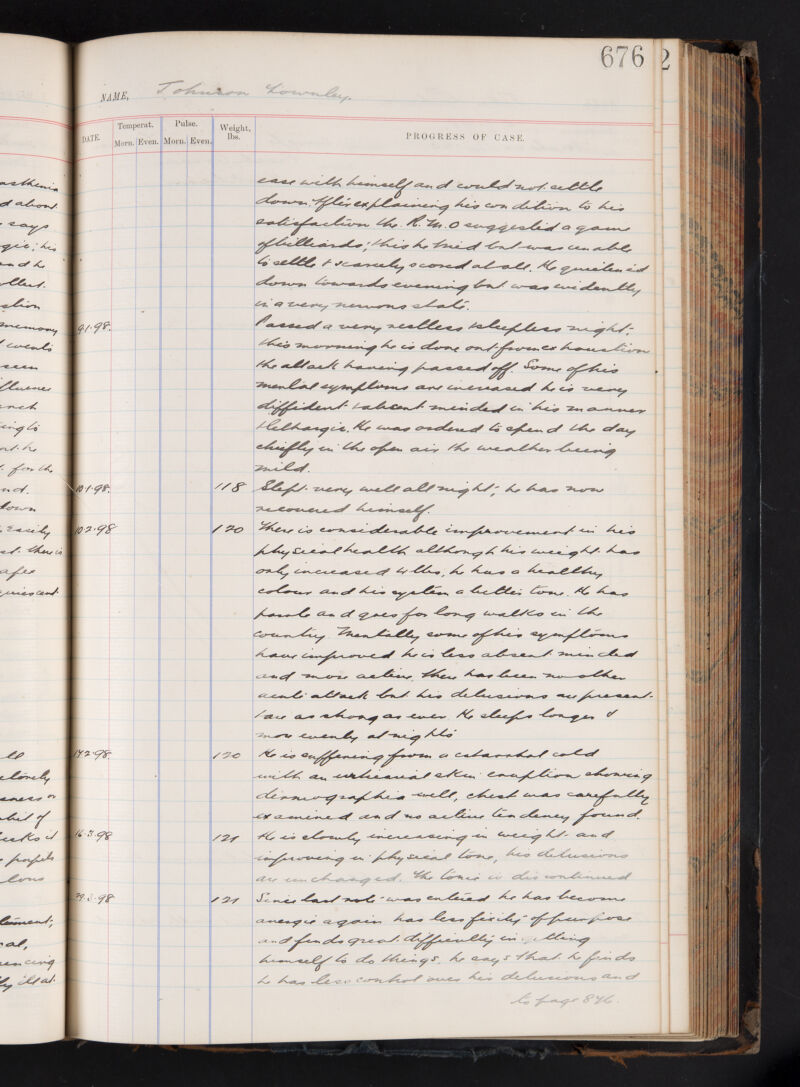 676
2
NAME, Johnson Townley.
DATE. Temperat. Pulse. Weight, lbs. PROGRESS OF CASE.
Morn. Even. Morn. Even.
ease with himself and could not settle
down. After explaining his condition to his
satisfaction the R.M.O suggested a game
of billiards; this he tried but was unable
to settle & scarcely scored at all. He quietened
down towards evening but was evidently
in a very nervous state.
9.1.98. Passed a very restless & sleepless night;
this morning he is done out from exhaustion
the attack having passed off. Some of his
mental symptoms are increased he is very
diffident & absent minded in his manner
& lethargic. He was ordered to spend the day
chiefly in the open air the weather being
mild.
10.1.98. 118 Slept very well all night; he has now
recovered himself.
10.2.98 120 There is considerable improvement in his
physical health although his weight has
only increased 4 lbs, he has a healthy
colour and his system a better tone. He has
parole and goes for long walks in the
country. Mentally some of his symptoms
have improved he is less absent minded
and more active, there has been no other
acute attack but his delusions are present
& are as strong as ever. He sleeps longer &
more evenly at nights.
14.2.98 120 He is suffering from a catarrhal cold
with an urticarial skin eruption showing
dermographia well, chest was carefully
examined and no active tendency found.
16.3.98 121 He is slowly increasing in weight and
improving in physical tone, his delusions
are unchanged. The tonic is discontinued
29.3.98 121 Since last note was entered he has become
anergic again has less fixity of purpose
and finds great difficulty in getting
himself to do things. he says that he finds
he has less control over his delusions and
to page 846.